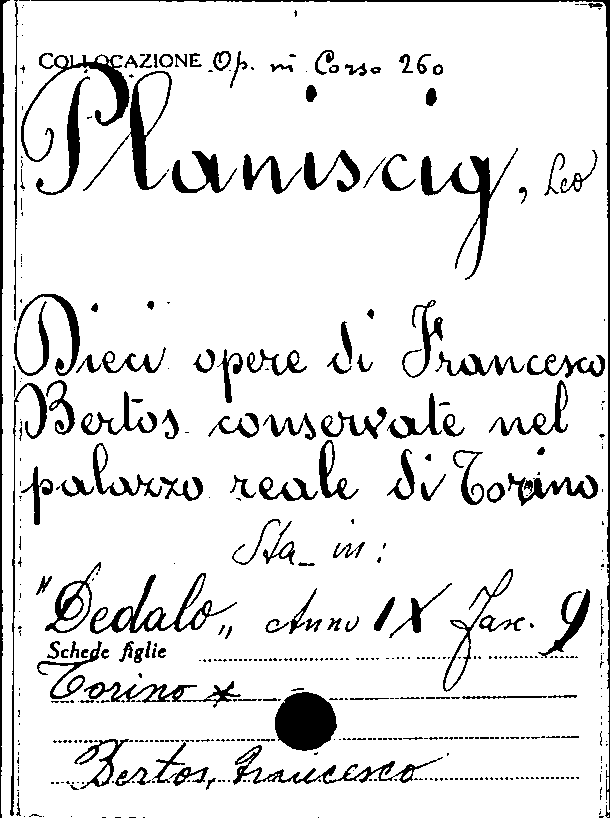 COLLOCAZIONE Op. in Corso 260
Planiscig, Leo
Dieci opere di Francesco
Bertos conservate nel
palazzo reale di Torino
Sta in:
"Dedalo„ Anno IX Fasc. 9
Schede figlie
Torino *
Bertos, Francesco